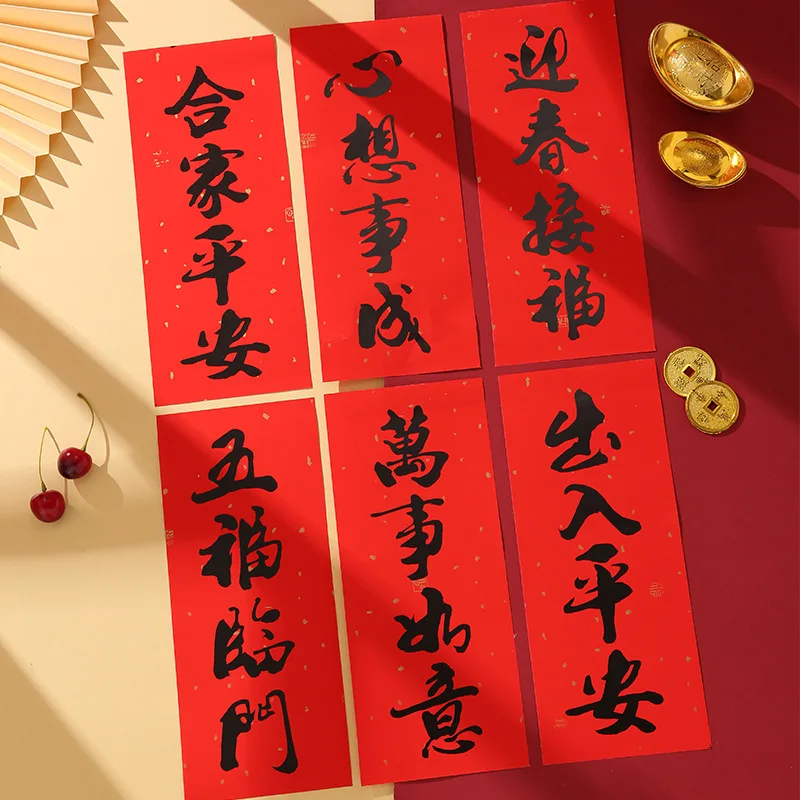 合家平安
心想事成
迎春接福
五福臨門
萬事如意
出入平安